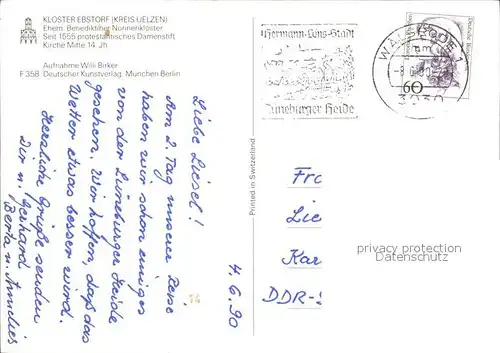 KLOSTER EBSTORF (KREIS UELZEN)
Ehem. Benediktiner Nonnenkloster
Seit 1565 protestantisches Damenstift
Kirche Mitte 14. Jh.
Aufnahme Willi Birker
F 358 Deutscher Kunstverlag, München Berlin
Hermann-Löns-Stadt
Lüneburger Heide
WALSRODE 1
3030
60
4.6.90
Liebe Liesel!
Am 2. Tag unserer Reise
haben wir schon einiges
von der Lüneburger Heide
gesehen. Wir hoffen, daß das
Wetter etwas besser wird.
Herzliche Grüße senden
Dir u. Gerhard
Berta u. Annelies
14
Printed in Switzerland
Frc
Lie
Kar
DDR-
privacy protection
Datenschutz